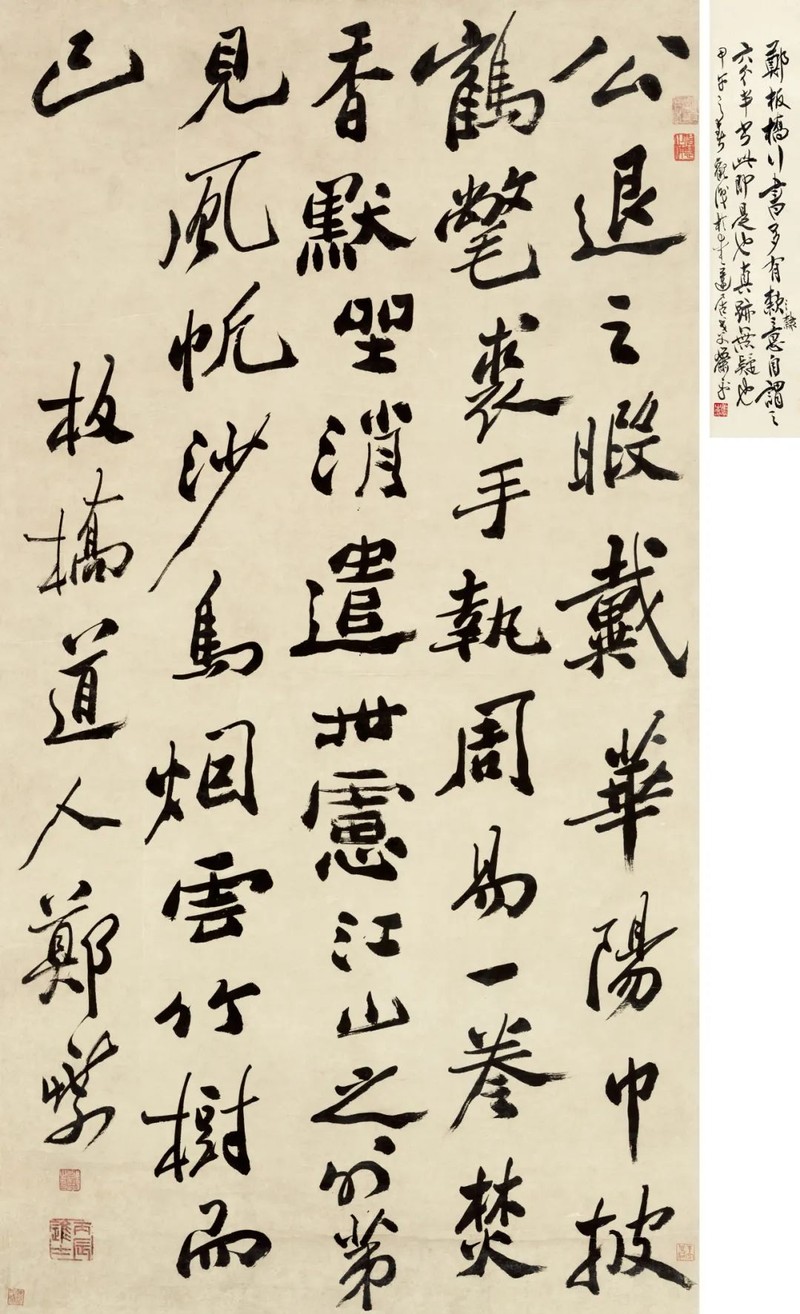 公退之暇戴華陽巾披
鶴氅裘手執周易一卷焚
香默坐消遣世慮江山之外第
見風帆沙鳥烟雲竹樹而
已
板橋道人鄭燮
丙辰進士
鄭板橋行書多有隸意自謂之
六分半書此即是也真跡無疑也
甲午之春觀識於
蕭平